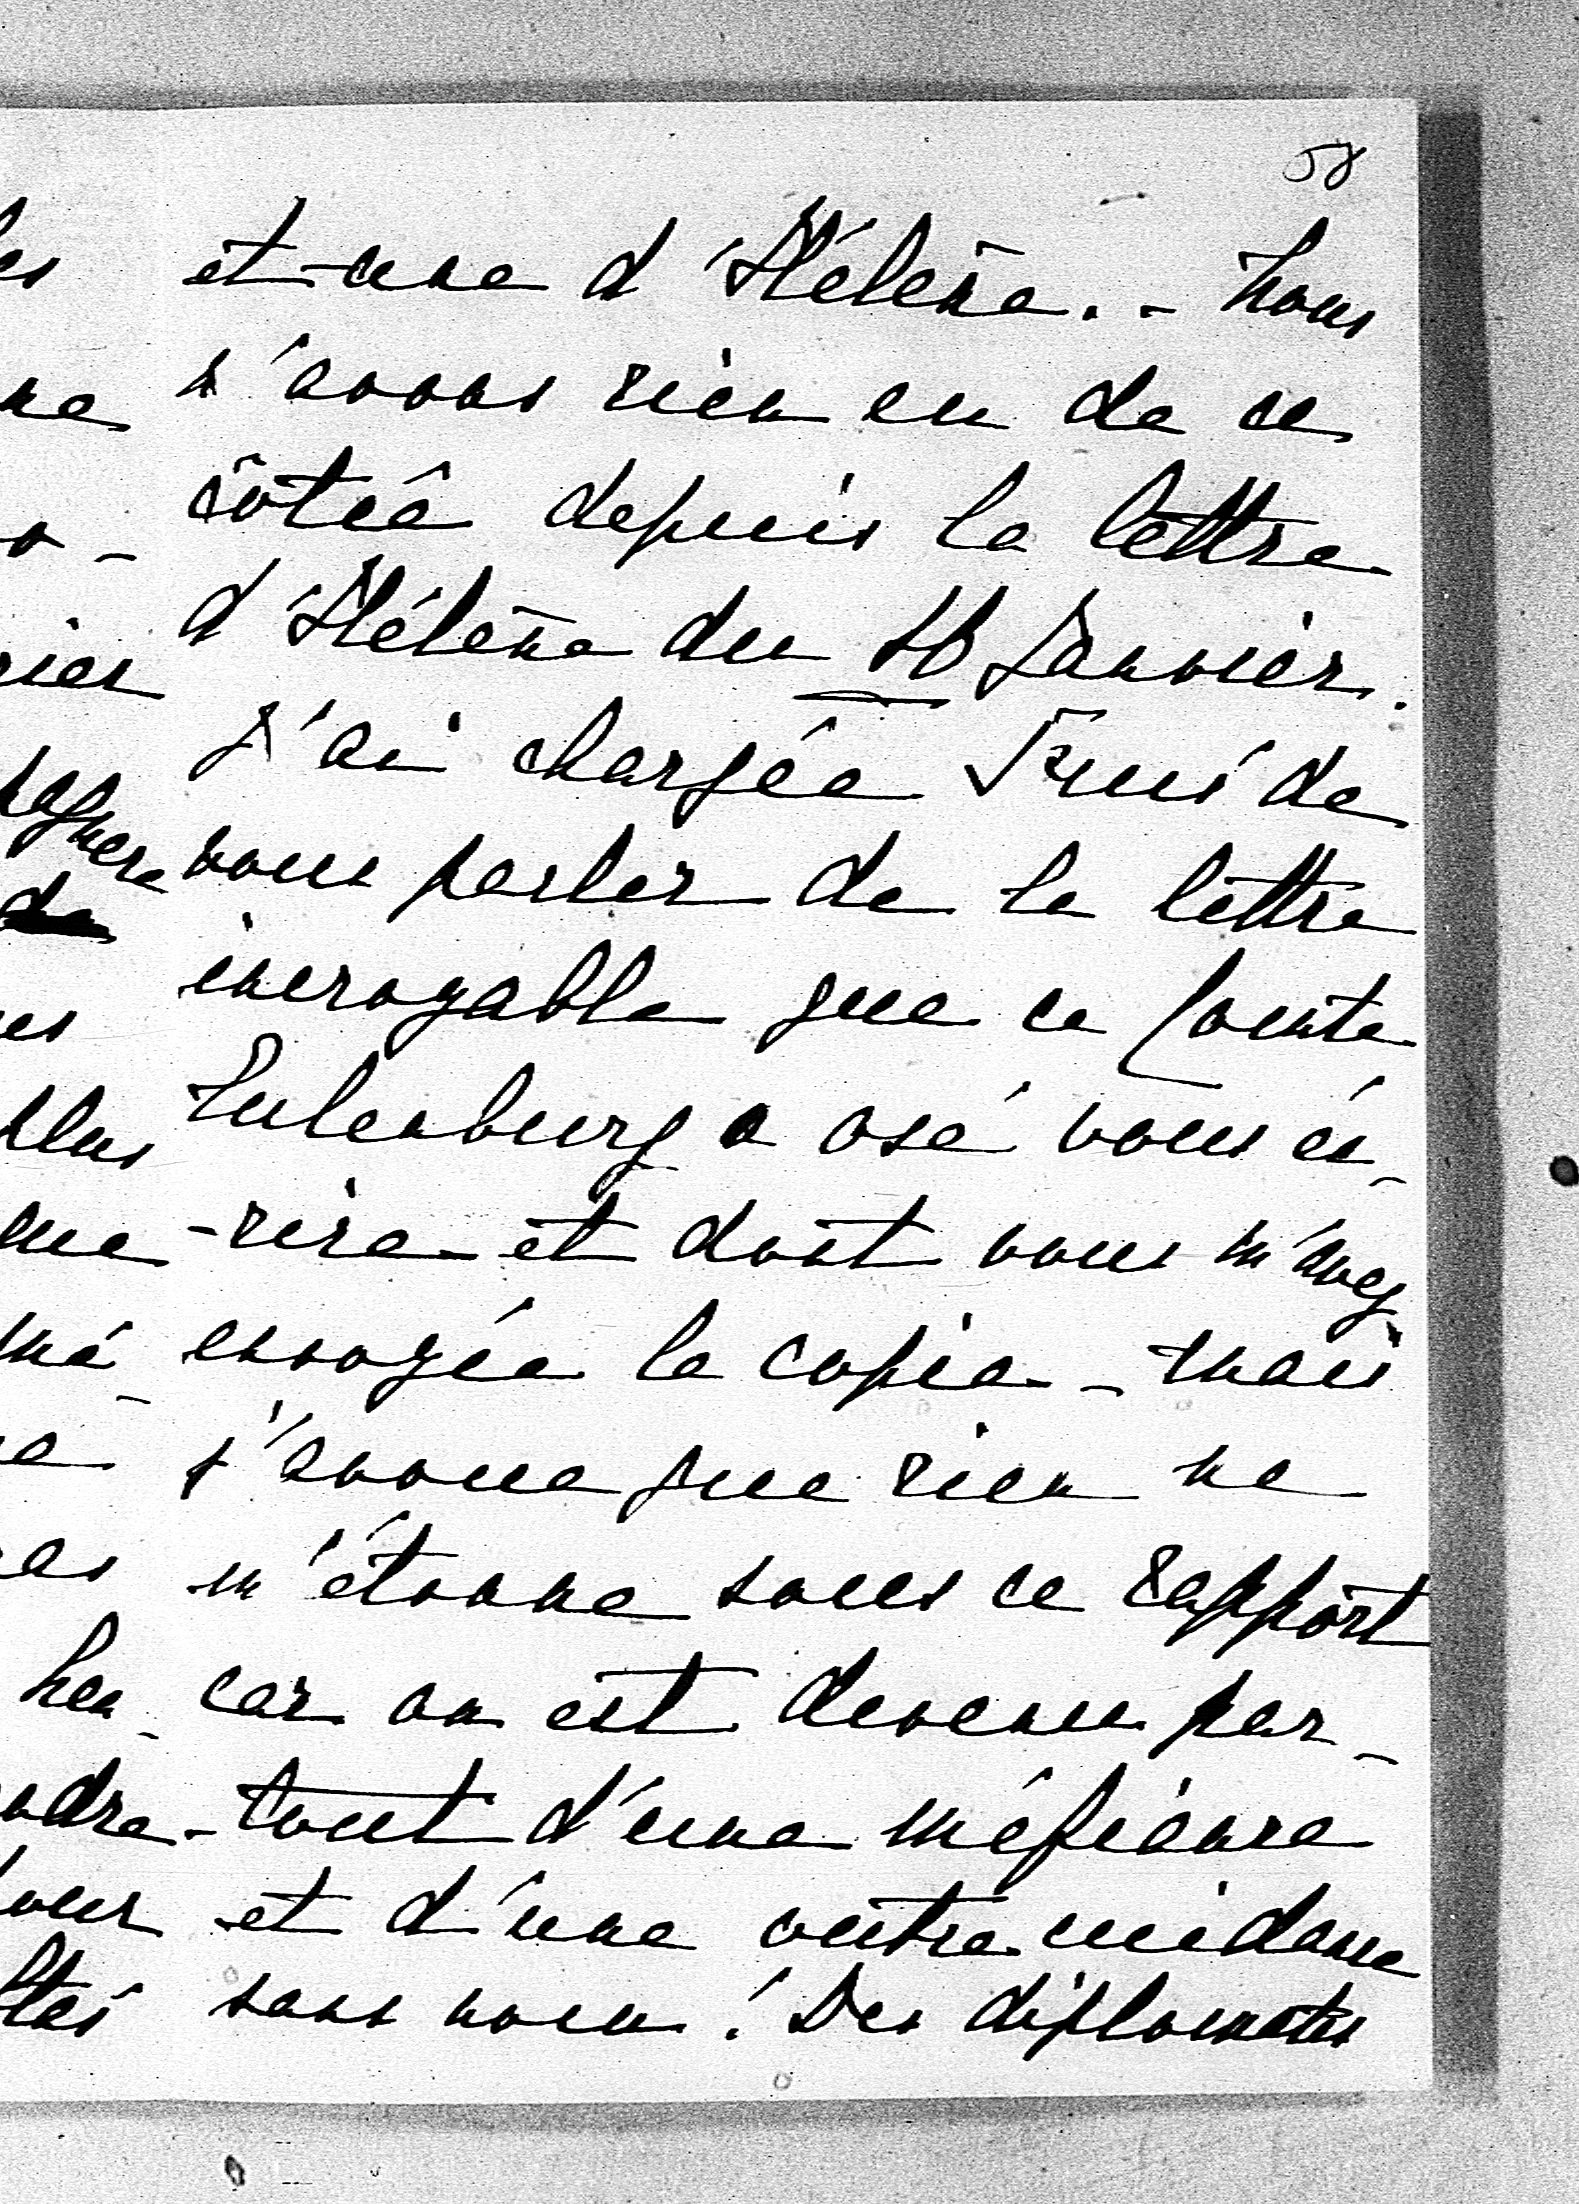 58
et une d'Hélène. - Nous
n'avons rien eu de ce
côtéé depuis la lettre
d'Hélène du 16 Janvier.
J'ai chargée de
vous parler de la lettre
incroyable que ce Comte
Eulenburg a osé vous éc-
-rire et dont vous m'avez
envoyée la copie - mais
j'avoue que rien ne
m'étonne sous ce rapport
car on est devenu par-
-tout d'une méfiance
et d'une outrecuidance
sans nom! Des diplomates